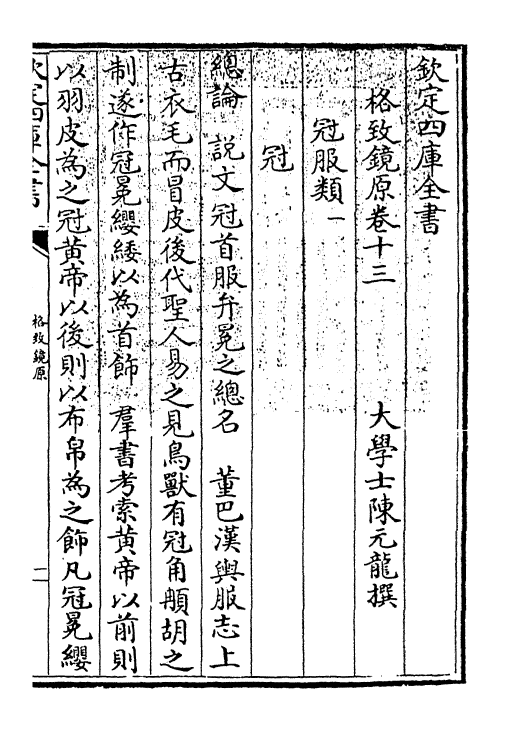 欽定四庫全書
格致鏡原卷十三　大學士陳元龍撰
冠服類一
冠
總論　説文冠首服弁冕之總名　董巴漢輿服志上
古衣毛而冒皮後代聖人易之見鳥獸有冠角𩑺胡之
制遂作冠冕纓緌以為首飾　羣書考索黄帝以前則
以羽皮為之冠黄帝以後則以布帛為之飾凡冠冕纓
欽定四庫全書
格致鏡原
一